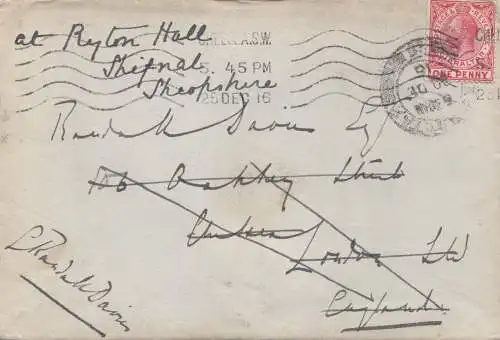 at Ryton Hall
Shifnal
Shropshire
CHELSEA.S.W.
5. 45 PM
25 DEC 16
GIBRALTAR
ONE PENNY
Randall Davies Esq
Oakley Street
Chelsea
London
England
Randall Davies